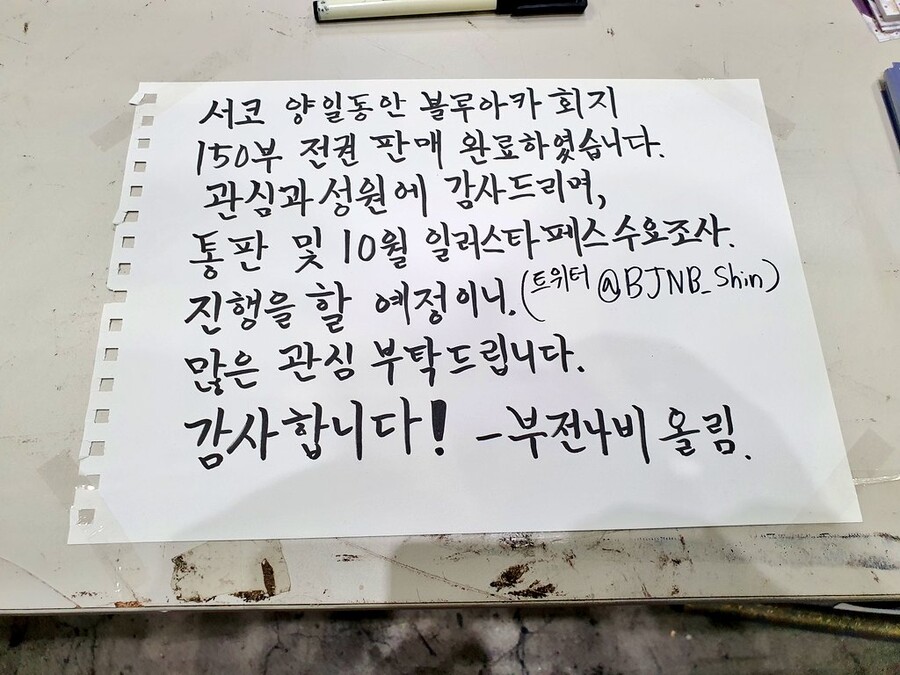 서코 양일동안 블루아카 회지
150부 전권 판매 완료하였습니다.
관심과 성원에 감사드리며,
통판 및 10월 일러스타페스 수요조사.
진행을 할 예정이니.(트위터 @BJNB_Shin)
많은 관심 부탁드립니다.
감사합니다! -부전나비 올림.